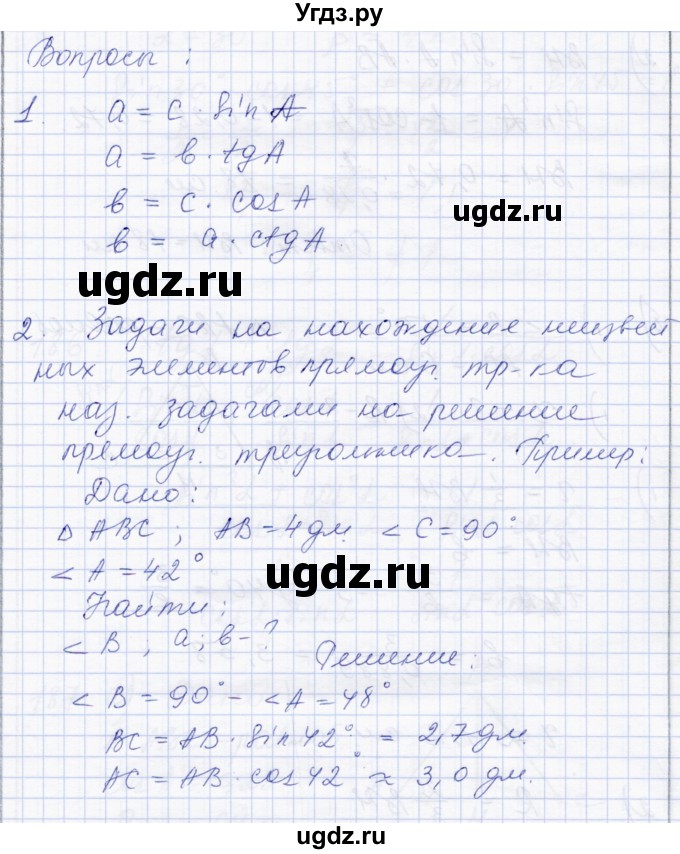 Угдз.ру
Вопросы :
1. a = c · sin A
a = в · tgA
в = c · cosA
ugdz.ru
в = a · ctgA
ugdz.ru
2. Задачи на нахождения неизвест
ных элементов прямоуг. тр-ка
наз. задачами на решение
прямоуг. треугольника. Пример:
Дано:
Δ ABC ; AB = 4дм. < C = 90°
< A = 42°
ugdz.ru
Найти:
< B ; a ; в - ?
Решение:
< B = 90° - < A = 48°
ugdz.ru
BC = AB · sin 42° = 2,7 дм.
AC = AB · cos 42° ≈ 3,0 дм.
ugdz.ru